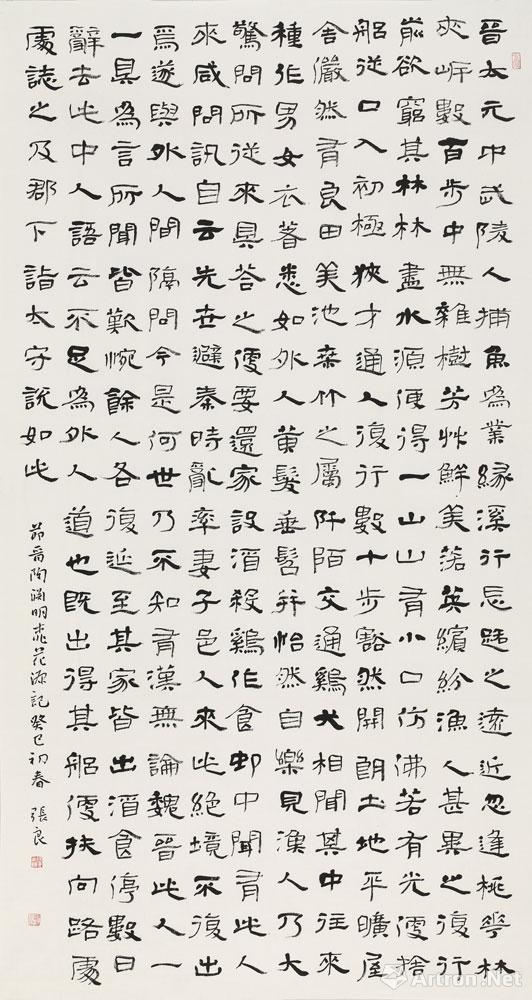 晉太元中武陵人捕魚為業緣溪行忘路之遠近忽逢桃華林
夾岸數百步中無雜樹芳艸鮮美落英繽紛漁人甚異之復行
前欲窮其林林盡水源便得一山山有小口仿佛若有光便捨
船從口入初極狹才通人復行數十步豁然開朗土地平曠屋
舍儼然有良田美池桑竹之屬阡陌交通鷄犬相聞其中往來
種作男女衣著悉如外人黃髮垂髫并怡然自樂見漁人乃大
驚問所從來具答之便要還家設酒殺鷄作食邨中聞有此人
來咸問訊自云先世避秦時亂率妻子邑人來此絕境不復出
焉遂與外人間隔問今是何世乃不知有漢無論魏晉此人一
一具為言所聞皆歎惋餘人各復延至其家皆出酒食停數日
辭去此中人語云不足為外人道也既出得其船便扶向路處
處誌之及郡下詣太守說如此
節晉陶淵明桃花源記癸巳初春 張良
Artron.Net